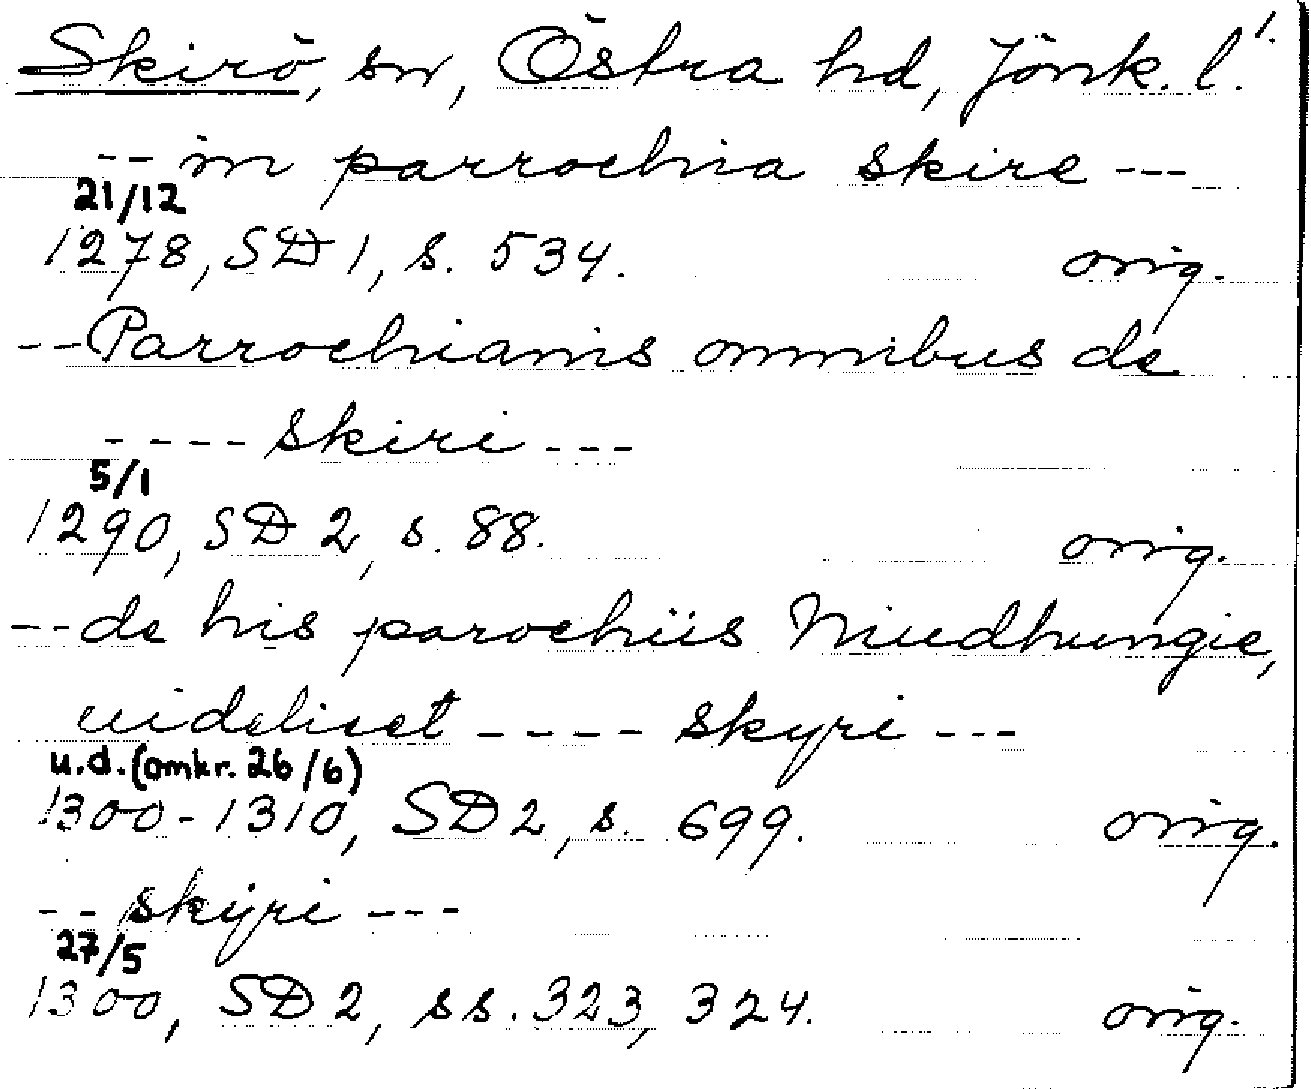 Skirö, sn, Östra hd, Jönk. l. 1.
-- in parrochia skire ---
21/12
1278, SD 1, s. 534. orig.
-- Parrochianis omnibus de
---- skiri ---
5/1
1290, SD 2, s. 88. orig.
-- de his parochiis Niudhungie,
uidelicet ---- skyri ---
u.d. (omkr. 26/6)
1300-1310, SD 2, s. 699. orig.
-- skyri ---
27/5
1300, SD 2, ss. 323, 324. orig.